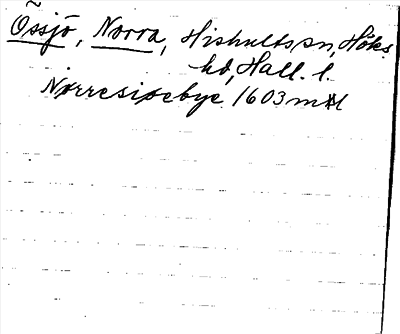 Össjö, Norra, Hishults sn, Höks
hd, Hall. l.
Nørresiøebye 1603 mtl